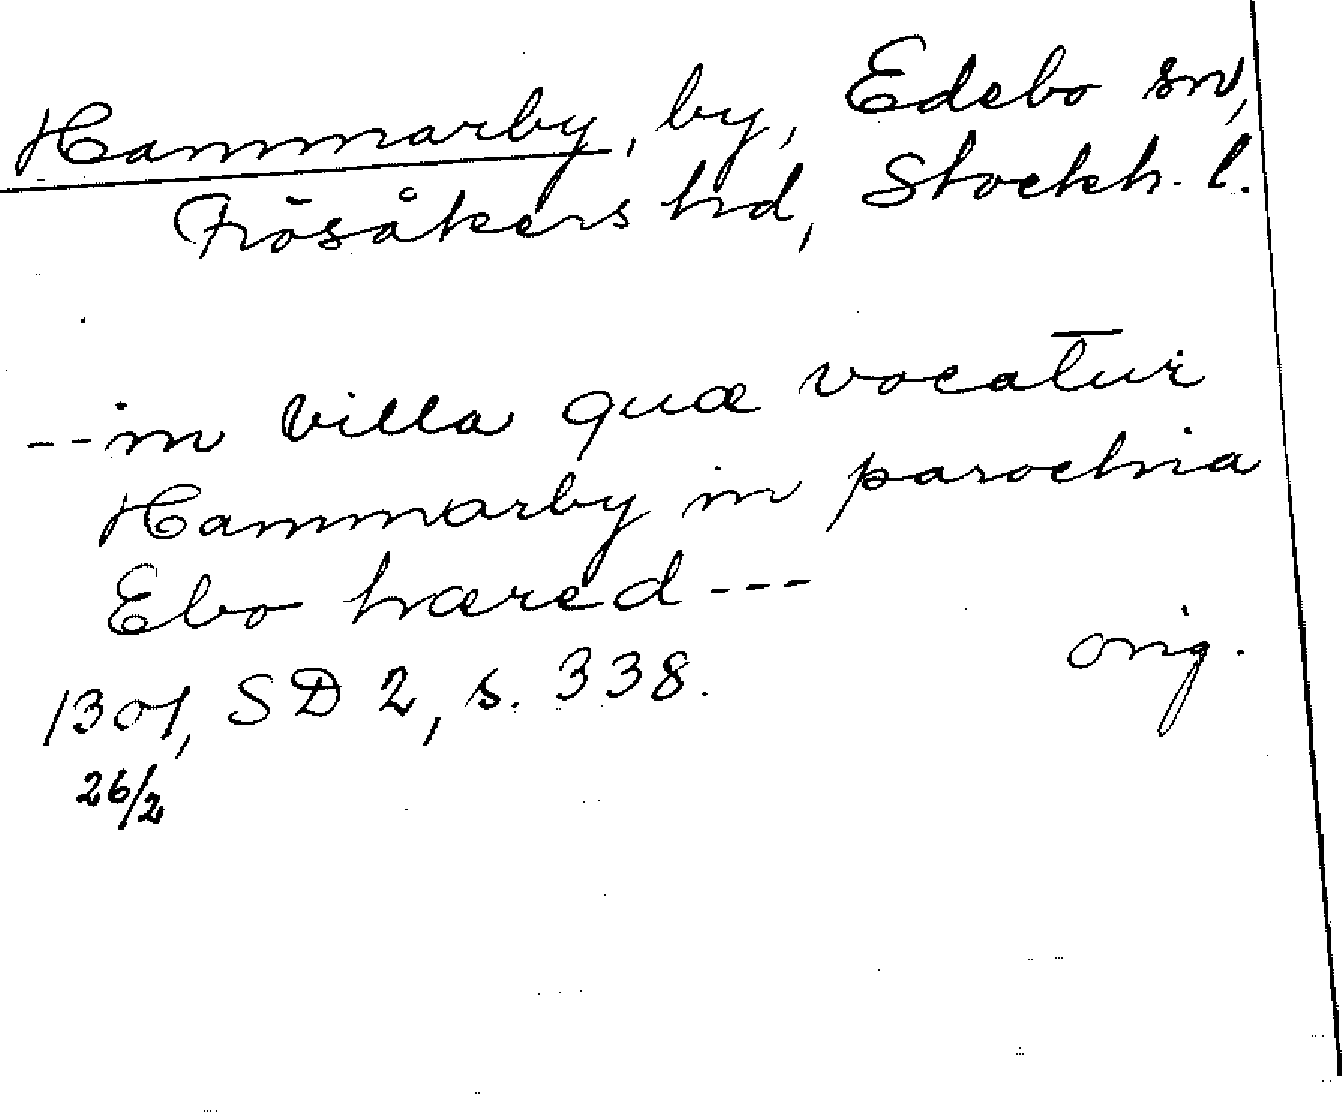 Hammarby, by, Edebo sn,
Frösåkers hd, Stockh. l.
--in villa quæ vocatur
Hammarby in parochia
Ebo hæred---
orig.
1301, SD 2, s. 338.
26/2